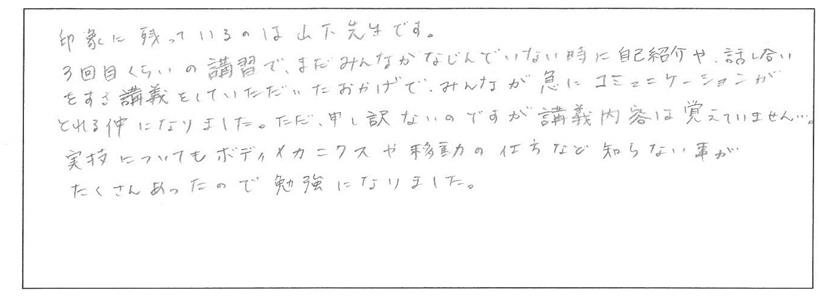 印象に残っているのは山下先生です。
3回目くらいの講習で、まだみんながなじんでいない時に自己紹介や、話し合い
をする講義をしていただいたおかげで、みんなが急にコミュニケーションが
とれる仲になりました。ただ、申し訳ないのですが講義内容は覚えていません…。
実技についてもボディメカニクスや移動の仕方など知らない事が
たくさんあったので勉強になりました。